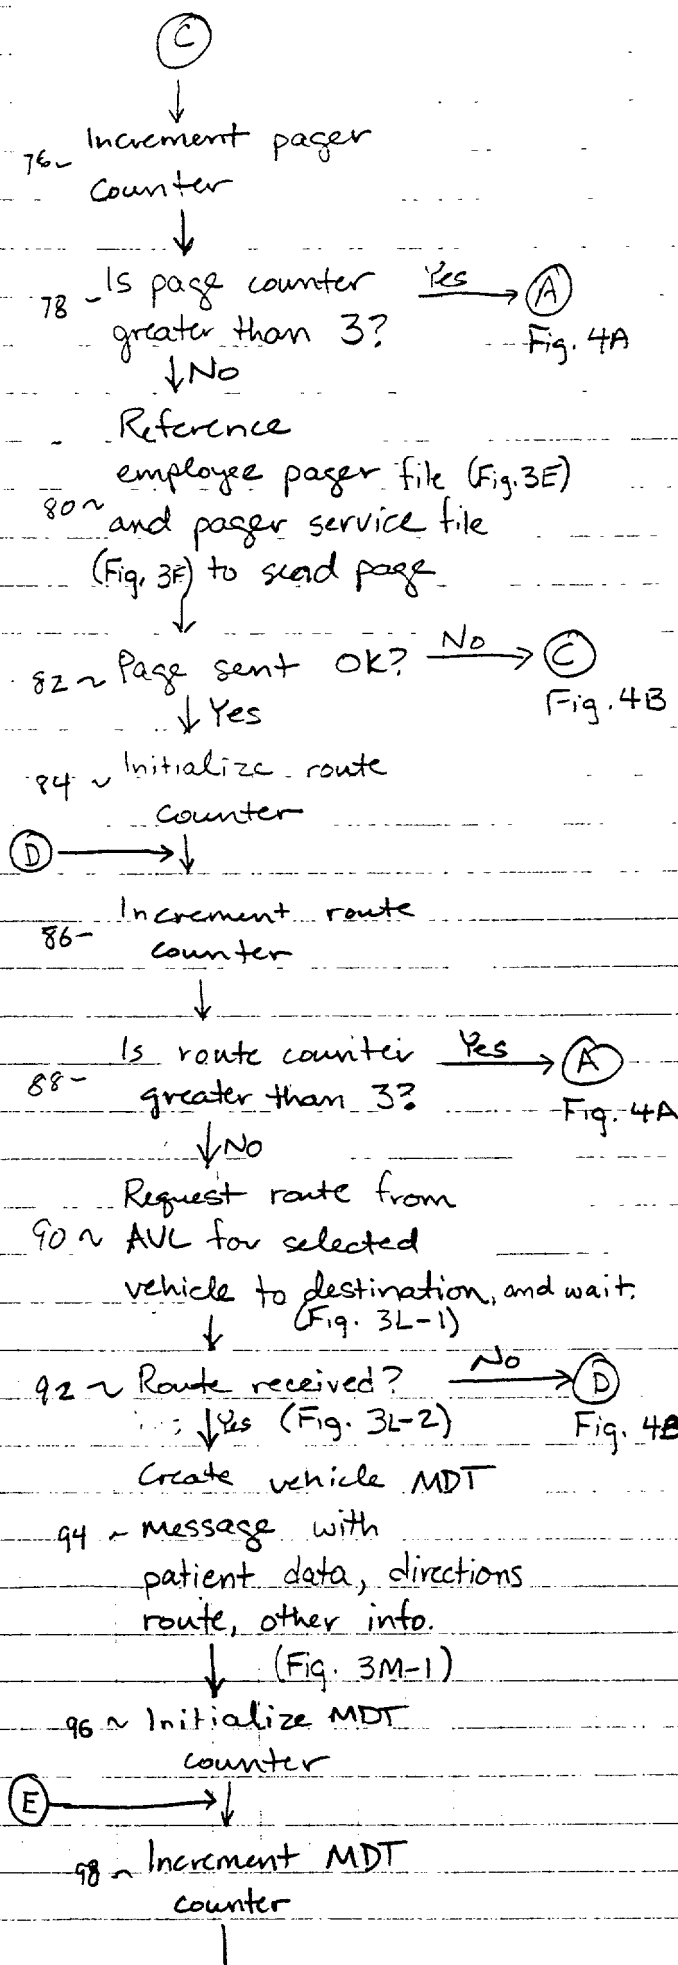 C
Increment pager
76~
counter
Is page counter Yes A
78 -
greater than 3? Fig. 4A
No
Reference
employee pager file (Fig. 3E)
80~ and pager service file
(Fig. 3F) to send page
82~ Page sent OK? No C
Yes Fig. 4B
84~ Initialize route
counter
D
Increment route
86-
counter
Is route counter Yes A
88-
greater than 3? Fig. 4A
No
Request route from
90~ AVL for selected
vehicle to destination, and wait.
(Fig. 3L-1)
92~ Route received? No D
Yes (Fig. 3L-2) Fig. 4B
Create vehicle MDT
94~ message with
patient data, directions
route, other info.
(Fig. 3M-1)
96~ Initialize MDT
counter
E
98~ Increment MDT
counter